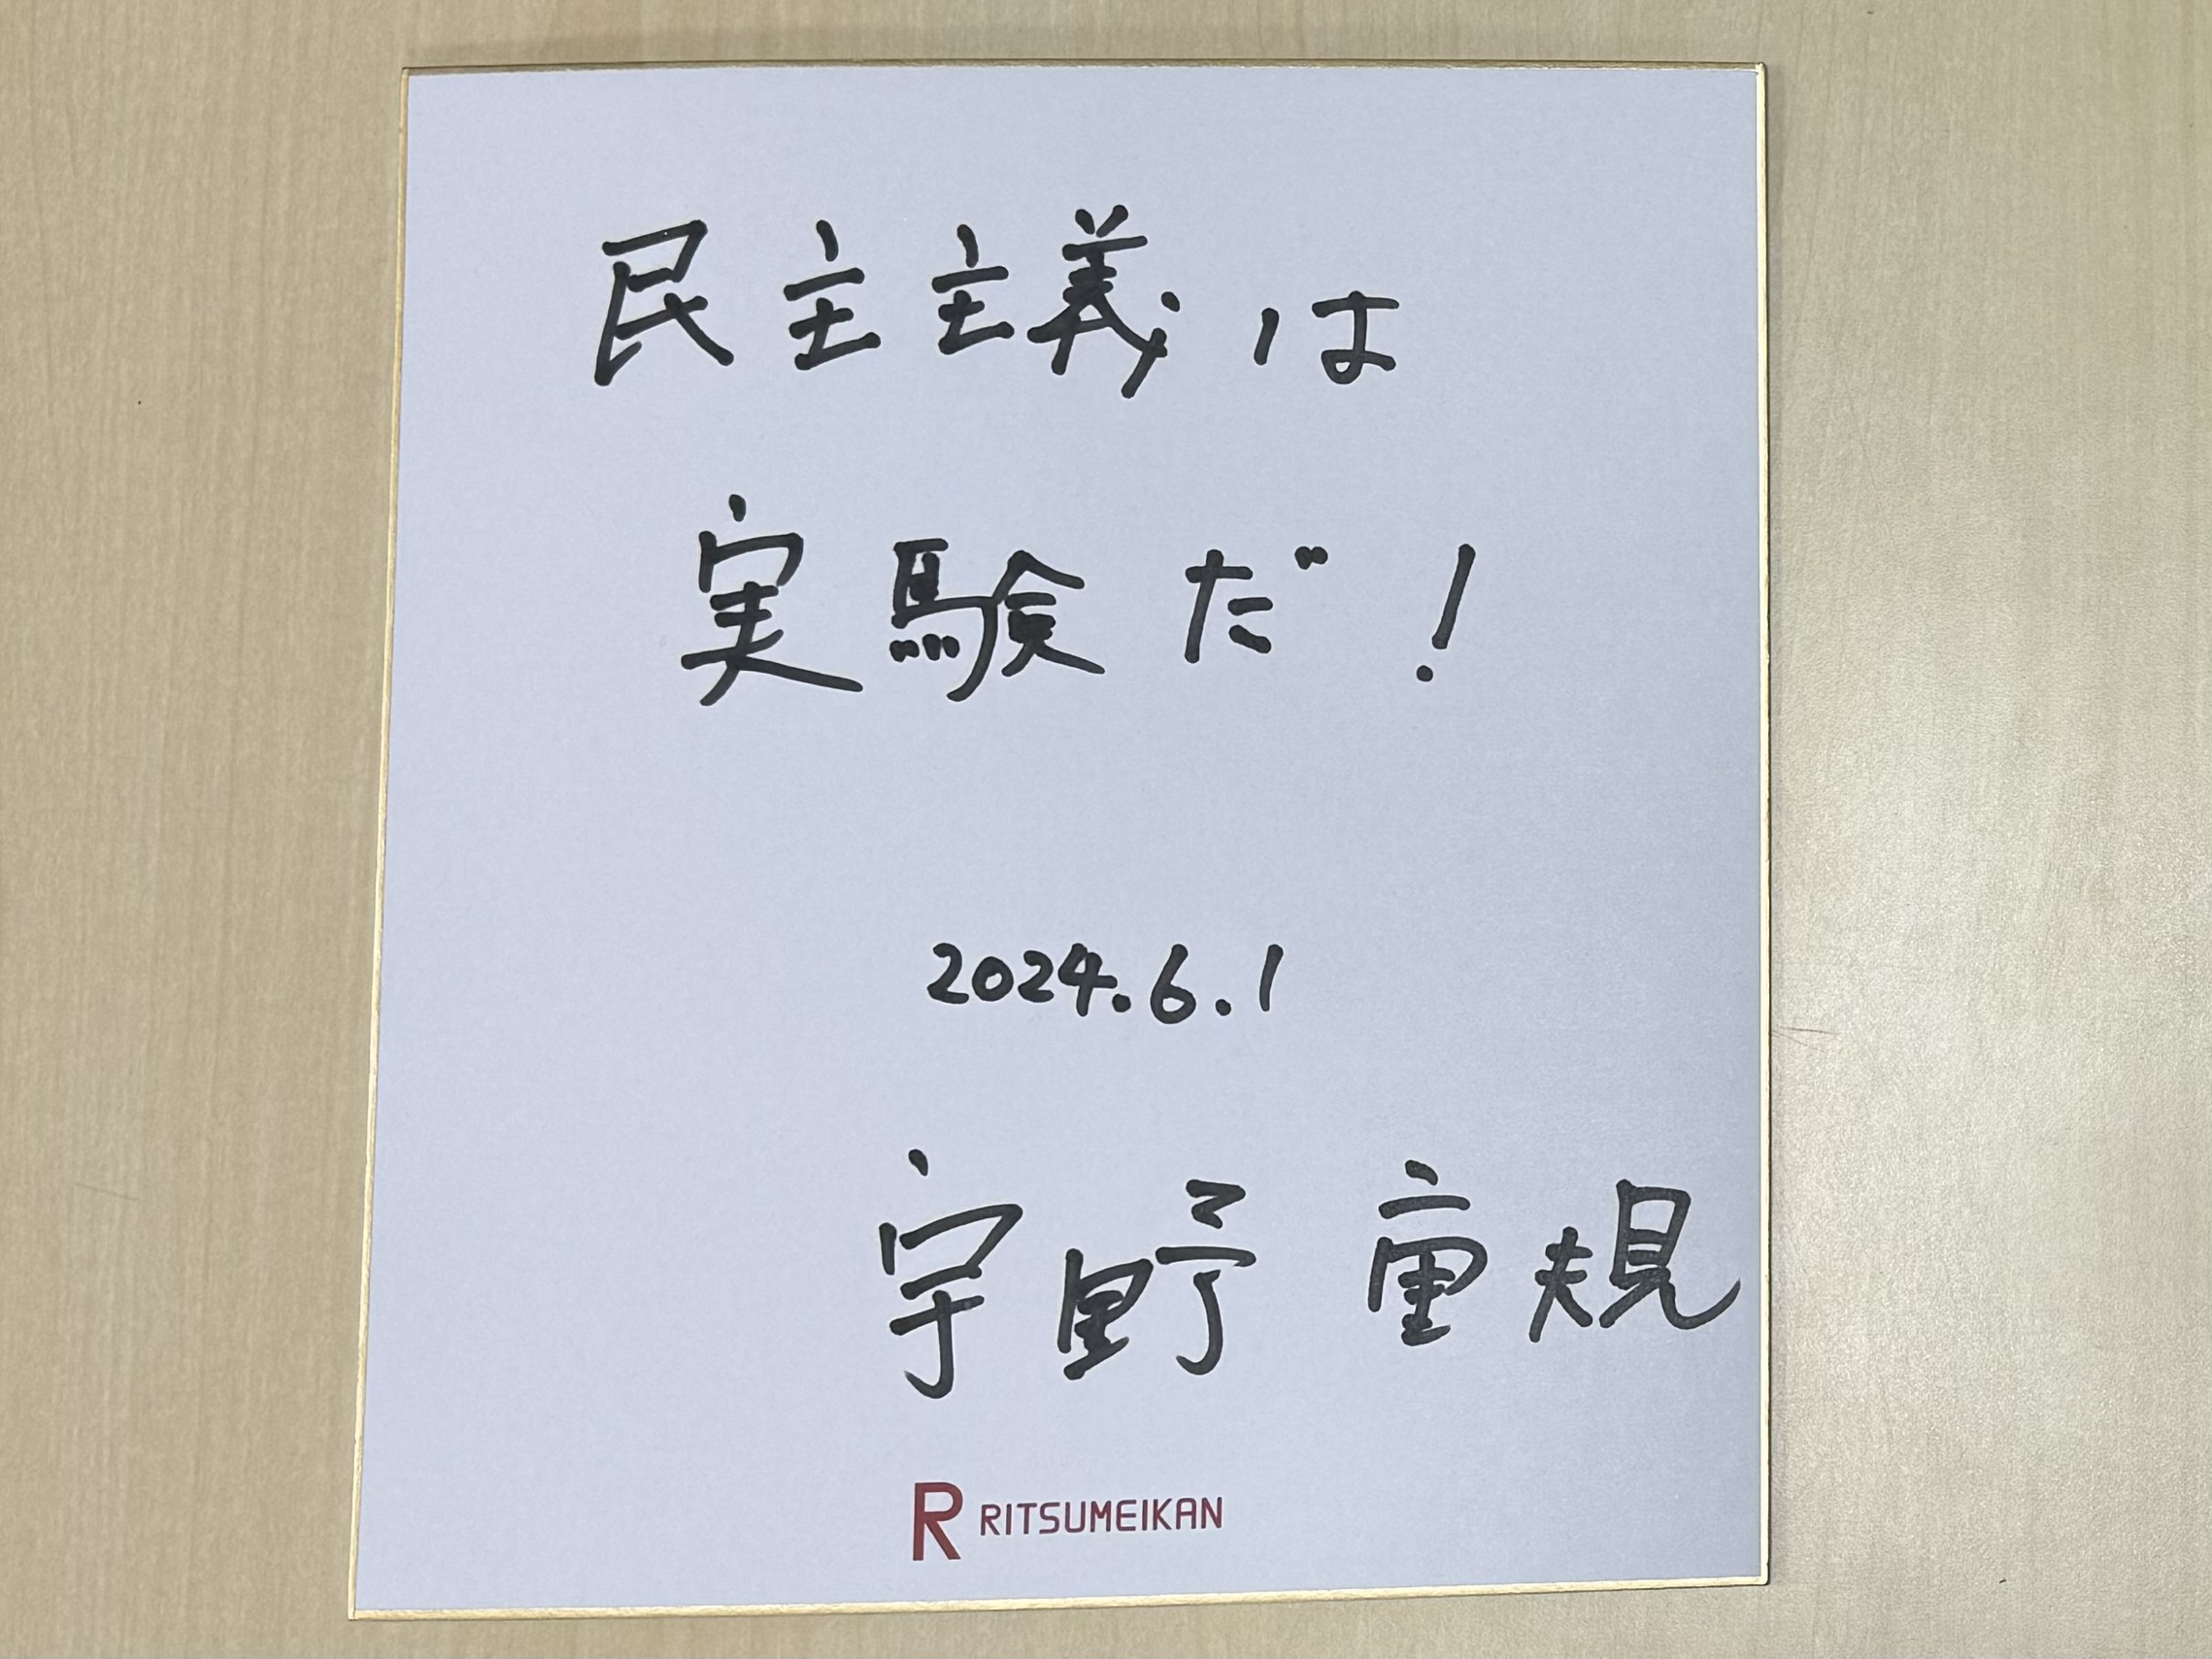 民主主義は
実験だ!
2024.6.1
宇野重規
R RITSUMEIKAN